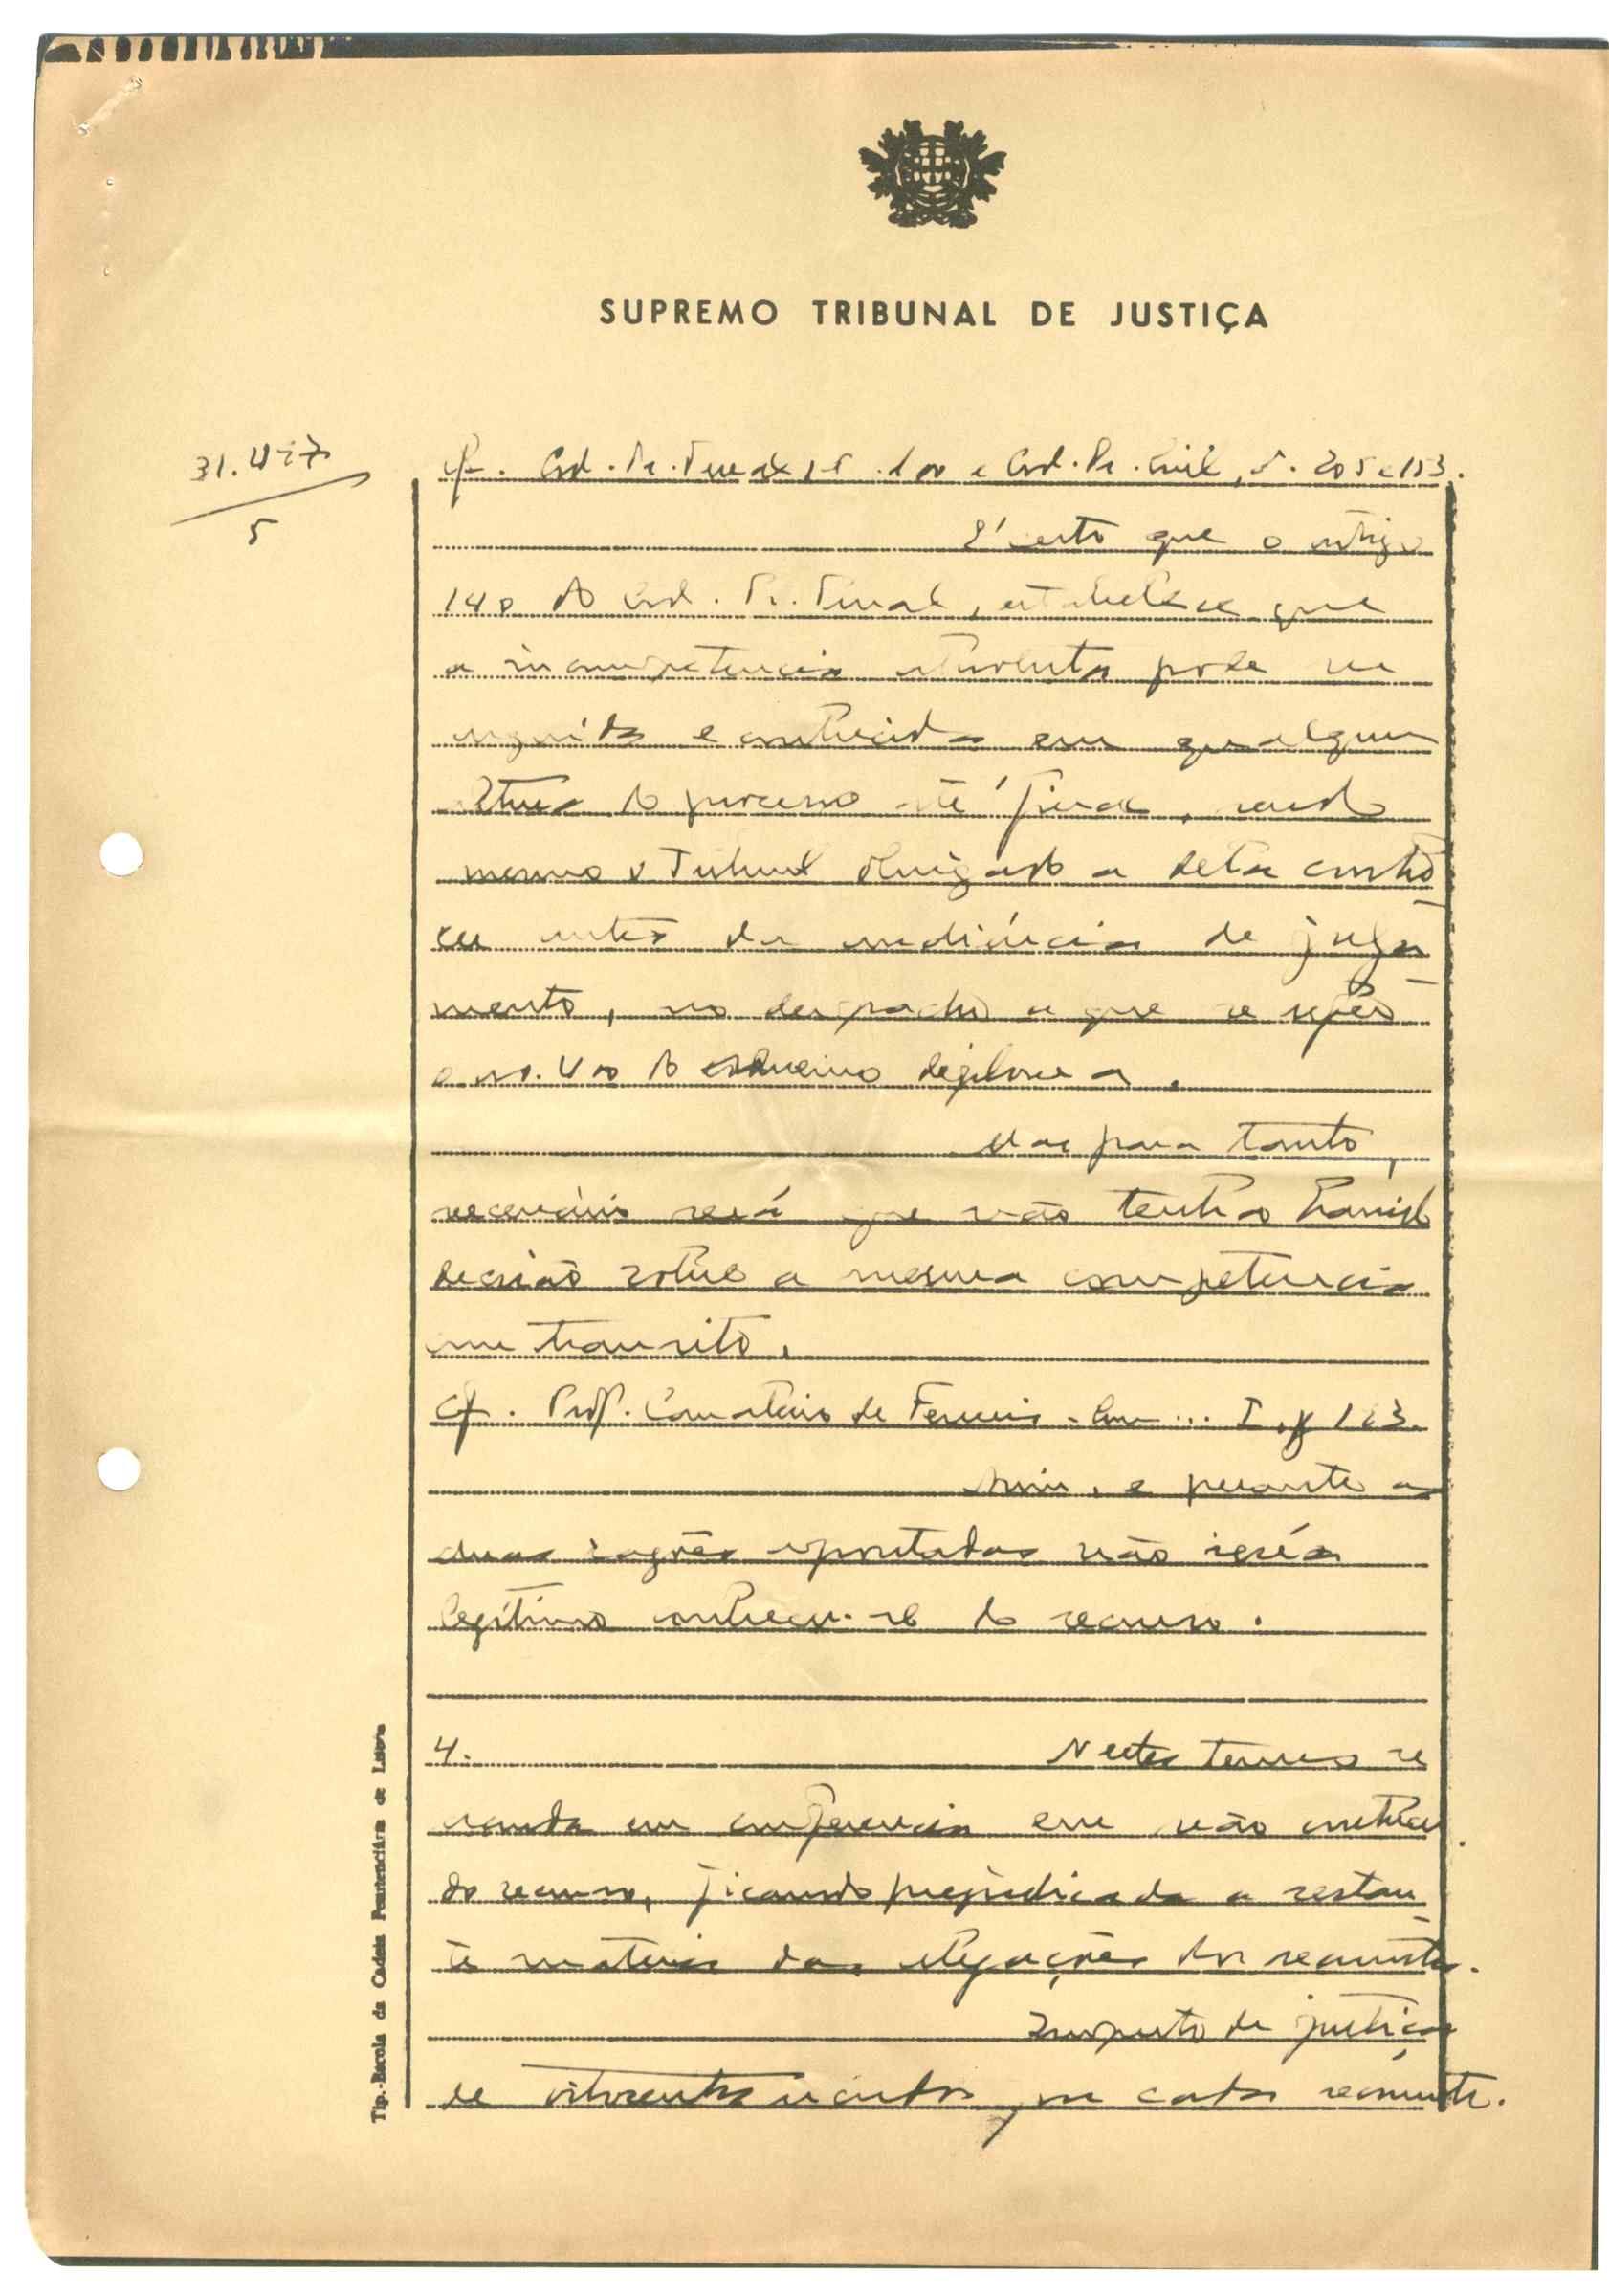 SUPREMO TRIBUNAL DE JUSTIÇA
31.427
5
Cf. Cod. Pr. Penal 1 e Cod. Pr. Civil, 205 e 153.
É certo que o artigo
140 do Cod. Pr. Penal, estabelece que
a incompetencia absoluta pode ser
arguida e conhecida em qualquer
altura do processo até final, sendo
mesmo o Tribunal obrigado a dela conhe
cer antes da audiência de julga-
mento, no despacho a que se refere
o art. 400 do diploma
Mas para tanto,
necessário será que não tenha havido
decisão sobre a mesma competencia
com transito.
Cf. Prof. Cavaleiro de Ferreira - Cur... I, 123.
Assim, e perante as
duas razões apontadas não será
legítimo conhecer-se do recurso.
4. Nestes termos se
acorda em conferencia em não conhecer
do recurso, ficando prejudicada a restan-
te materia das alegações dos recorrentes.
Imposto de justiça
de oitocentos escudos por cada recorrente.
Tip.-Escola da Cadeia Penitenciária de Lisboa